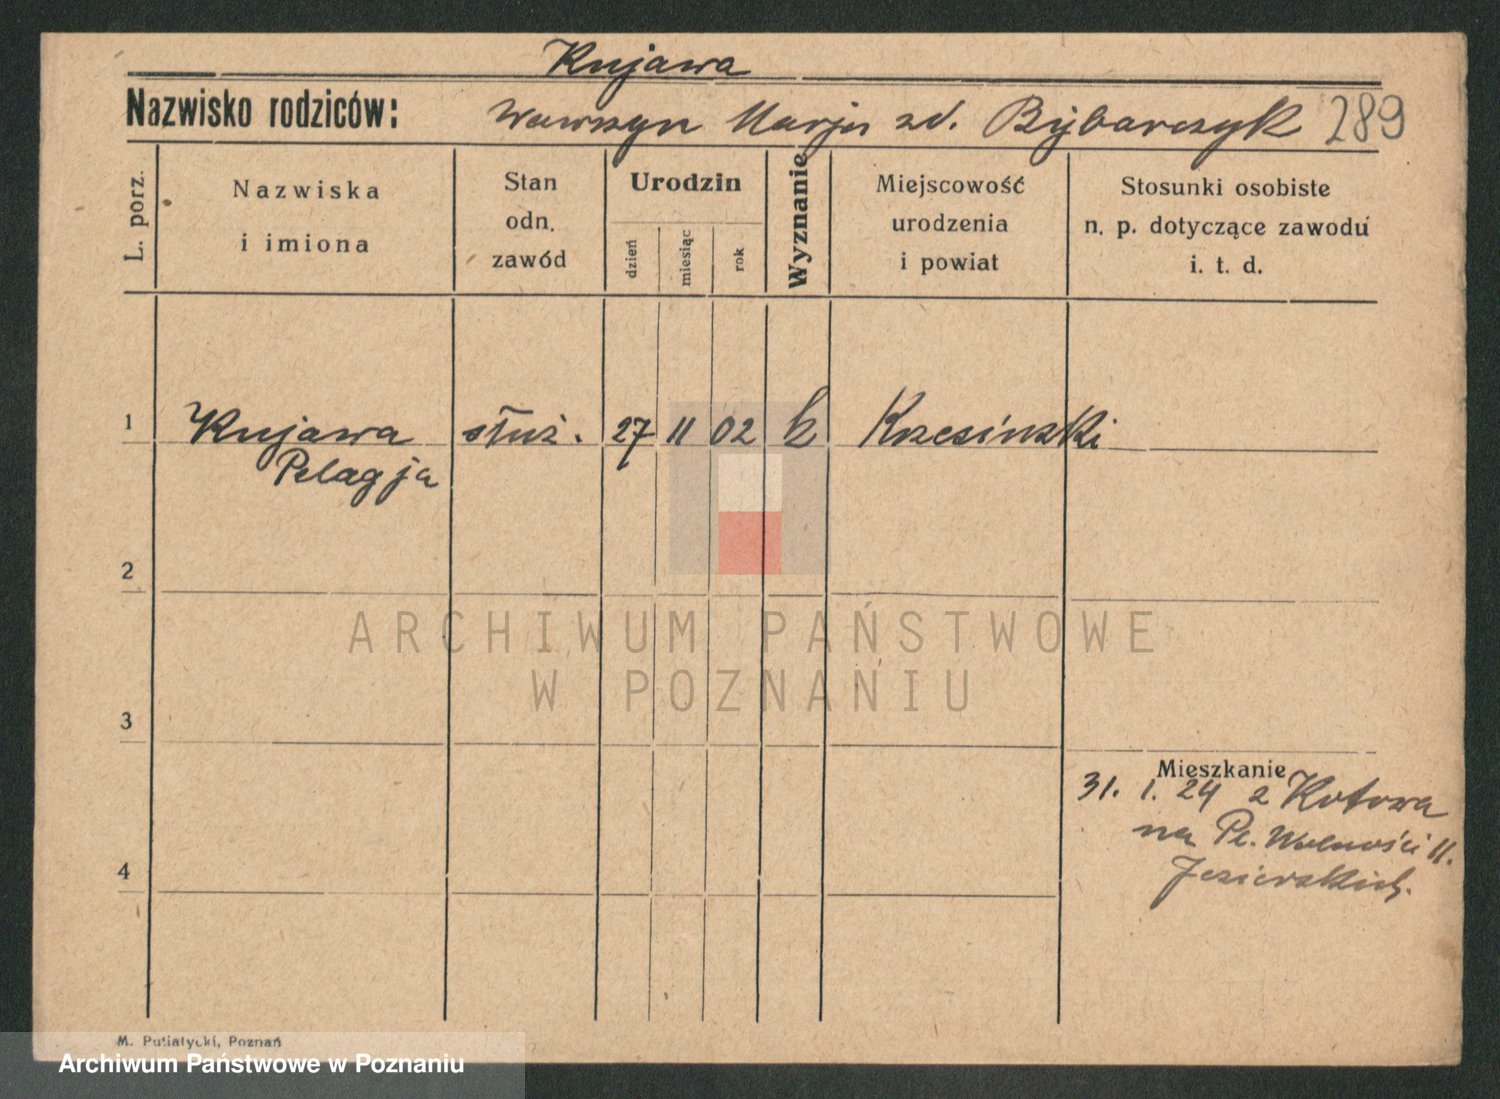 Kujawa
Nazwisko rodziców: Wawrzyn Marja zd. Bybarczyk 289
L. porz.
Nazwiska
i imiona
Stan
odn.
zawód
Urodzin
dzień
miesiąc
rok
Wyznanie
Miejscowość
urodzenia
i powiat
Stosunki osobiste
n. p. dotyczące zawodu
i. t. d.
1 Kujawa służ. 27 11 02 k Krzesinski
Pelagja
2
ARCHIWUM PAŃSTWOWE
W POZNANIU
3
Mieszkanie
31. 1. 24 z Kotowa
na Pl. Wolności 11.
Jezierskich.
4
M. Putiatycki, Poznań
Archiwum Państwowe w Poznaniu